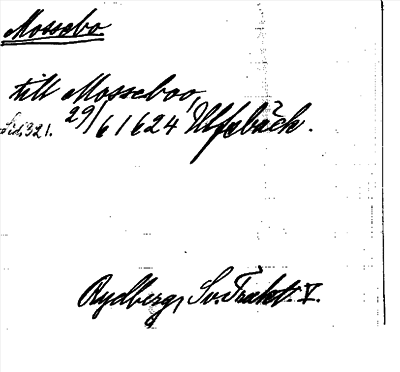 Mossebo
till Mosseboo,
Sid. 321. 29/6 1624 Ulfsbäck.
Rydberg, Sv. Trakt. V.